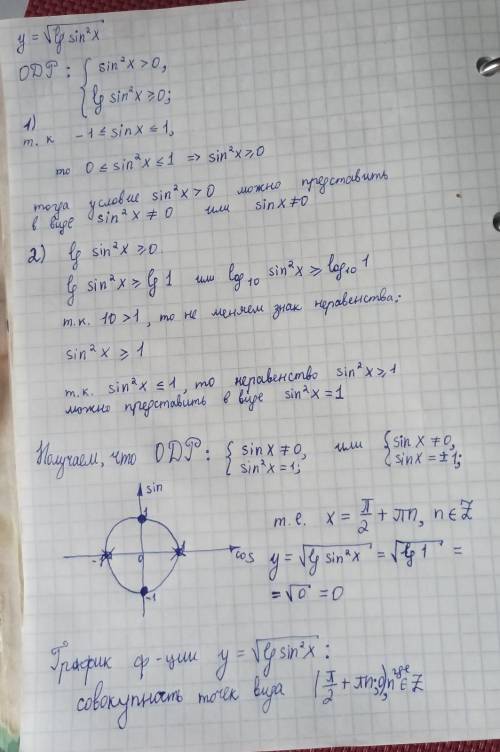 y = √(lg sin²x)
ОДР: { sin²x > 0,
lg sin²x ≥ 0;
1)
т.к -1 ≤ sinx ≤ 1,
то 0 ≤ sin²x ≤ 1 => sin²x ≥ 0
тогда условие sin²x > 0 можно представить
в виде sin²x ≠ 0 или sinx ≠ 0
2) lg sin²x ≥ 0.
lg sin²x ≥ lg 1 или log₁₀ sin²x ≥ log₁₀ 1
т.к. 10 > 1, то не меняем знак неравенства:
sin²x ≥ 1
т.к. sin²x ≤ 1, то неравенство sin²x ≥ 1
можно представить в виде sin²x = 1
Получаем, что ОДР: { sinx ≠ 0, или { sinx ≠ 0,
sin²x = 1; sinx = ±1;
sin
1
-1 0 1 cos
-1
т.е. x = π/2 + πn, n ∈ Z
y = √(lg sin²x) = √(lg 1) =
= √0 = 0
График ф-ции y = √(lg sin²x):
совокупность точек вида (π/2 + πn; 0), где n ∈ Z